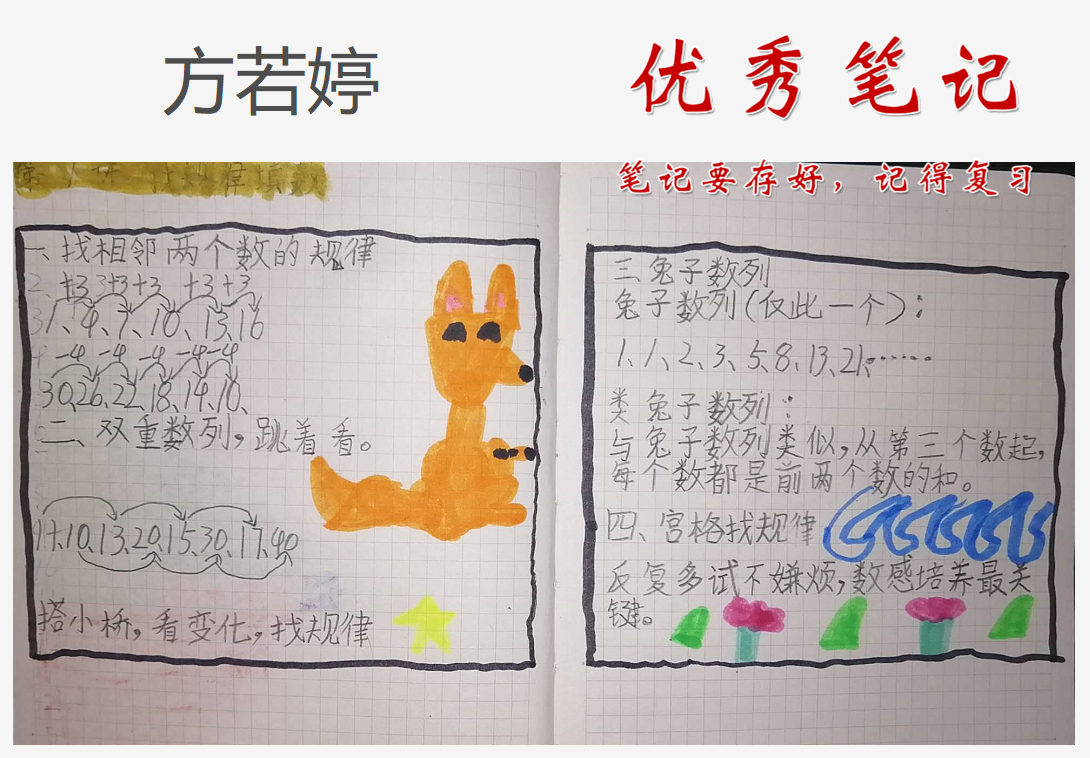 方若婷
优秀笔记
笔记要存好，记得复习
一、找相邻两个数的规律
+3 +3 +3 +3 +3
1、4、7、10、13、16
-4 -4 -4 -4 -4
30、26、22、18、14、10、
二、双重数列，跳着看。
11、10、13、20、15、30、17、40
搭小桥，看变化，找规律
三、兔子数列
兔子数列（仅此一个）：
1、1、2、3、5、8、13、21、……
类兔子数列：
与兔子数列类似，从第三个数起，
每个数都是前两个数的和。
四、宫格找规律
反复多试不嫌烦，数感培养最关
键。